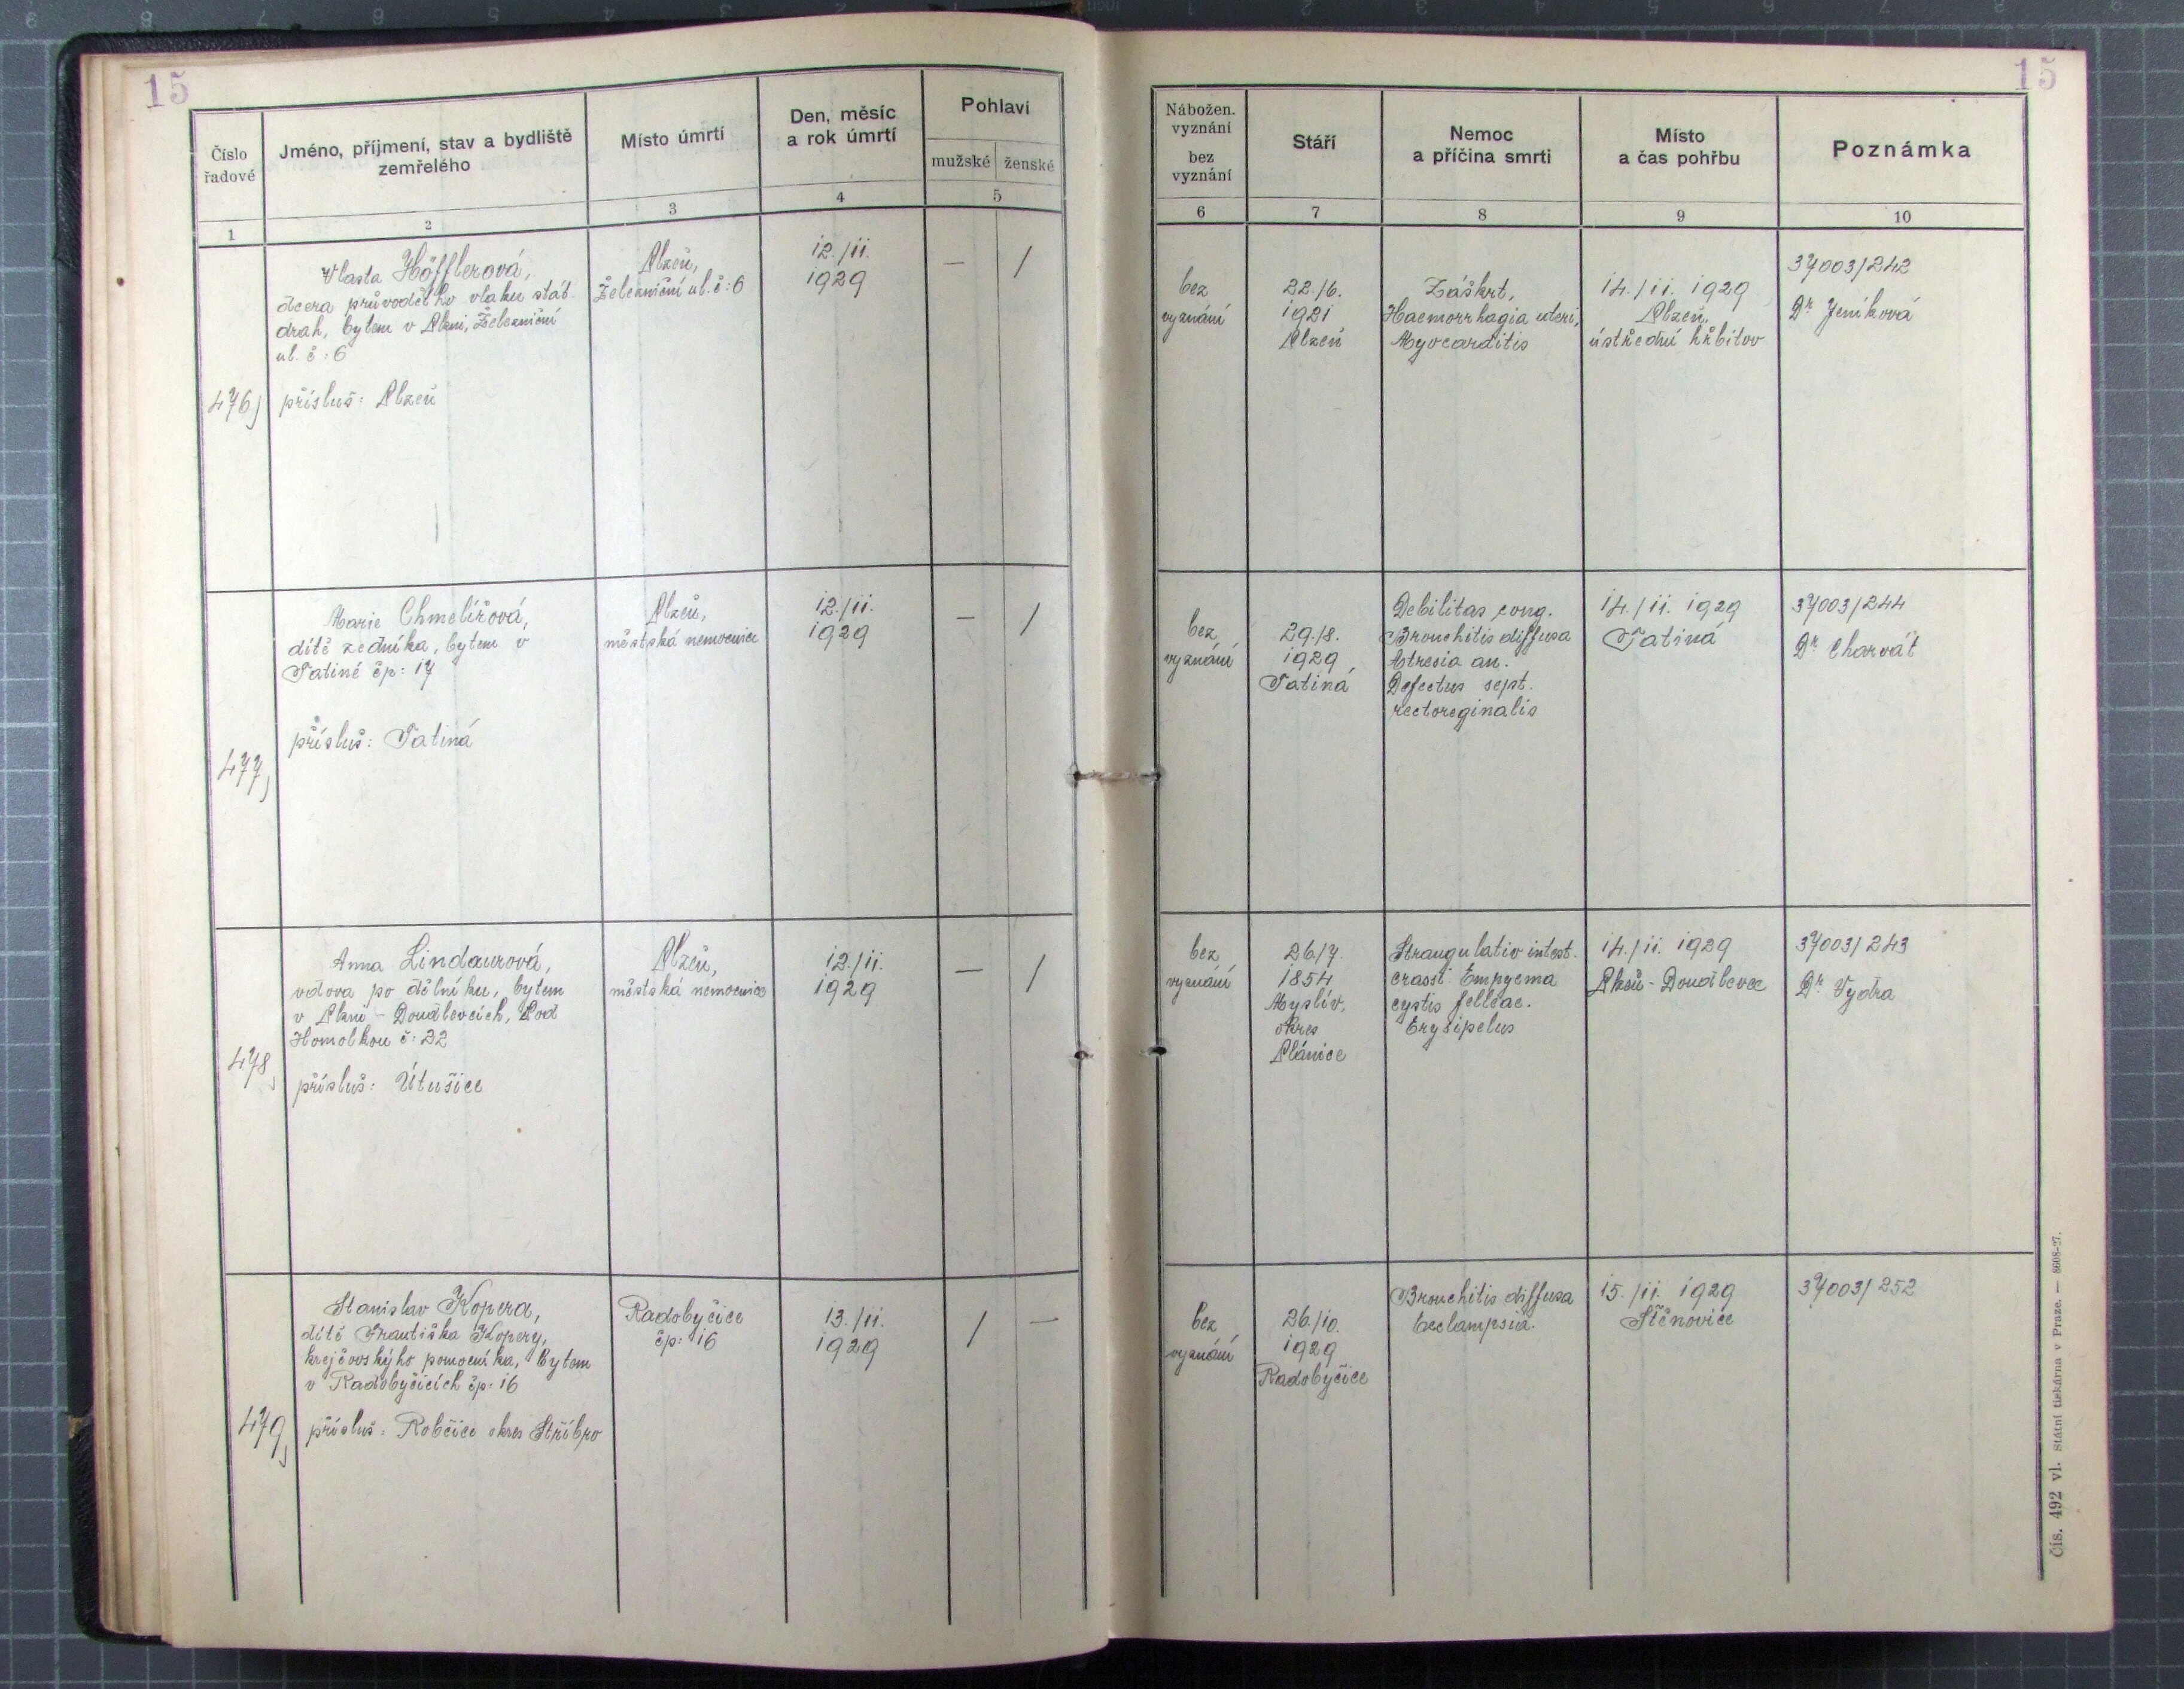 15
15
Číslo
řadové
Jméno, příjmení, stav a bydliště
zemřelého
Místo úmrtí
Den, měsíc
a rok úmrtí
Pohlaví
mužské
ženské
1
2
3
4
5
Nábožen.
vyznání
bez
vyznání
Stáří
Nemoc
a příčina smrti
Místo
a čas pohřbu
Poznámka
6
7
8
9
10
476)
Vlasta Höfflerová,
dcera průvodčího vlaku stát.
drah, bytem v Plzni, Železniční
ul. č: 6
přísluš: Plzeň
Plzeň,
Železniční ul. č: 6
12./11.
1929
—
/
bez
vyznání
22./6.
1921
Plzeň
Záškrt,
Haemorrhagia uteri,
Myocarditis
14./11. 1929
Plzeň,
ústřední hřbitov
37003/242
Dr Jeníková
477)
Marie Chmelířová,
dítě zedníka, bytem v
Tatiné čp: 17
přísluš: Tatiná
Plzeň,
městská nemocnice
12./11.
1929
—
/
bez
vyznání
29./8.
1929,
Tatiná
Debilitas cong.
Bronchitis diffusa
Atresia an.
Defectus sept.
rectoreginalis
14./11. 1929
Tatiná
37003/244
Dr Charvát
478)
Anna Lindaurová,
vdova po dělníku, bytem
v Plzni - Doudlevcích, Pod
Homolkou č: 22
přísluš: Útušice
Plzeň,
městská nemocnice
12./11.
1929
—
/
bez
vyznání
26./7.
1854
Myslív,
okres
Plánice
Strangulatio intest.
crassi Empyema
cystis felleae.
Erysipelus
14./11. 1929
Plzeň - Doudlevce
37003/243
Dr Vydra
479)
Stanislav Kopera,
dítě Františka Kopery,
krejčovskýho pomocníka, bytem
v Radobyčicích čp: 16
přísluš: Robčice okres Stříbro
Radobyčice
čp: 16
13./11.
1929
/
—
bez
vyznání
26./10.
1929
Radobyčice
Bronchitis diffusa
Ecclampsia.
15./11. 1929
Štěnovice
37003/252
Čís. 492 vl. Státní tiskárna v Praze. — 8608-27.